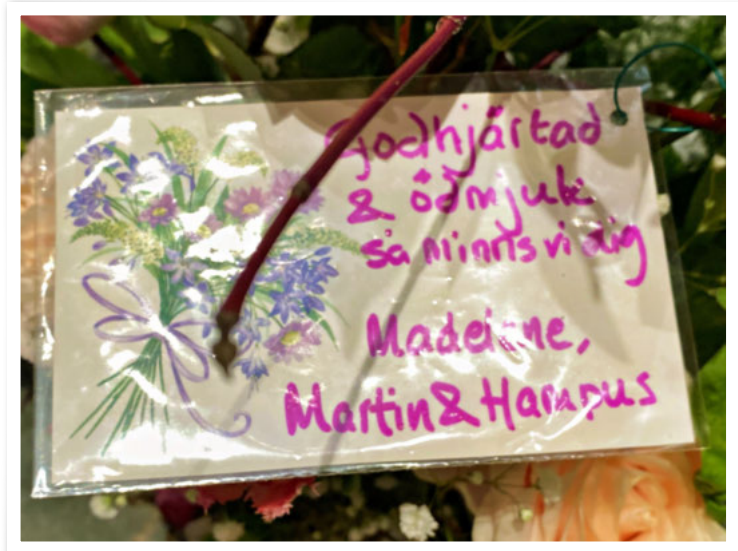 Godhjärtad
& ödmjuk
så minns vi dig
Martin & Hampus